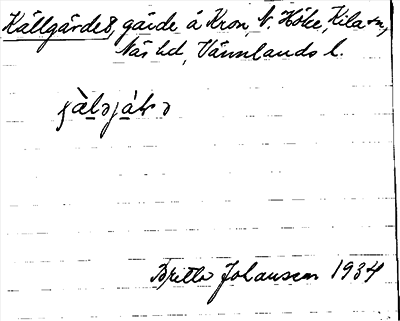 Källgärdet, gärde å Kron. V. Höke, Kila sn,
Näs hd, Värmlands l.
Britta Johansson 1934